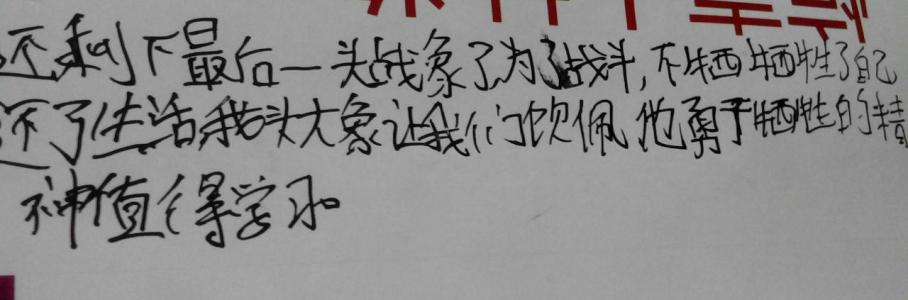 还剩下最后一头战象了为了战斗,不牺牺牲了自己
还了生活我头大象让我们饮佩他勇于牺牲的精
神值得学习。